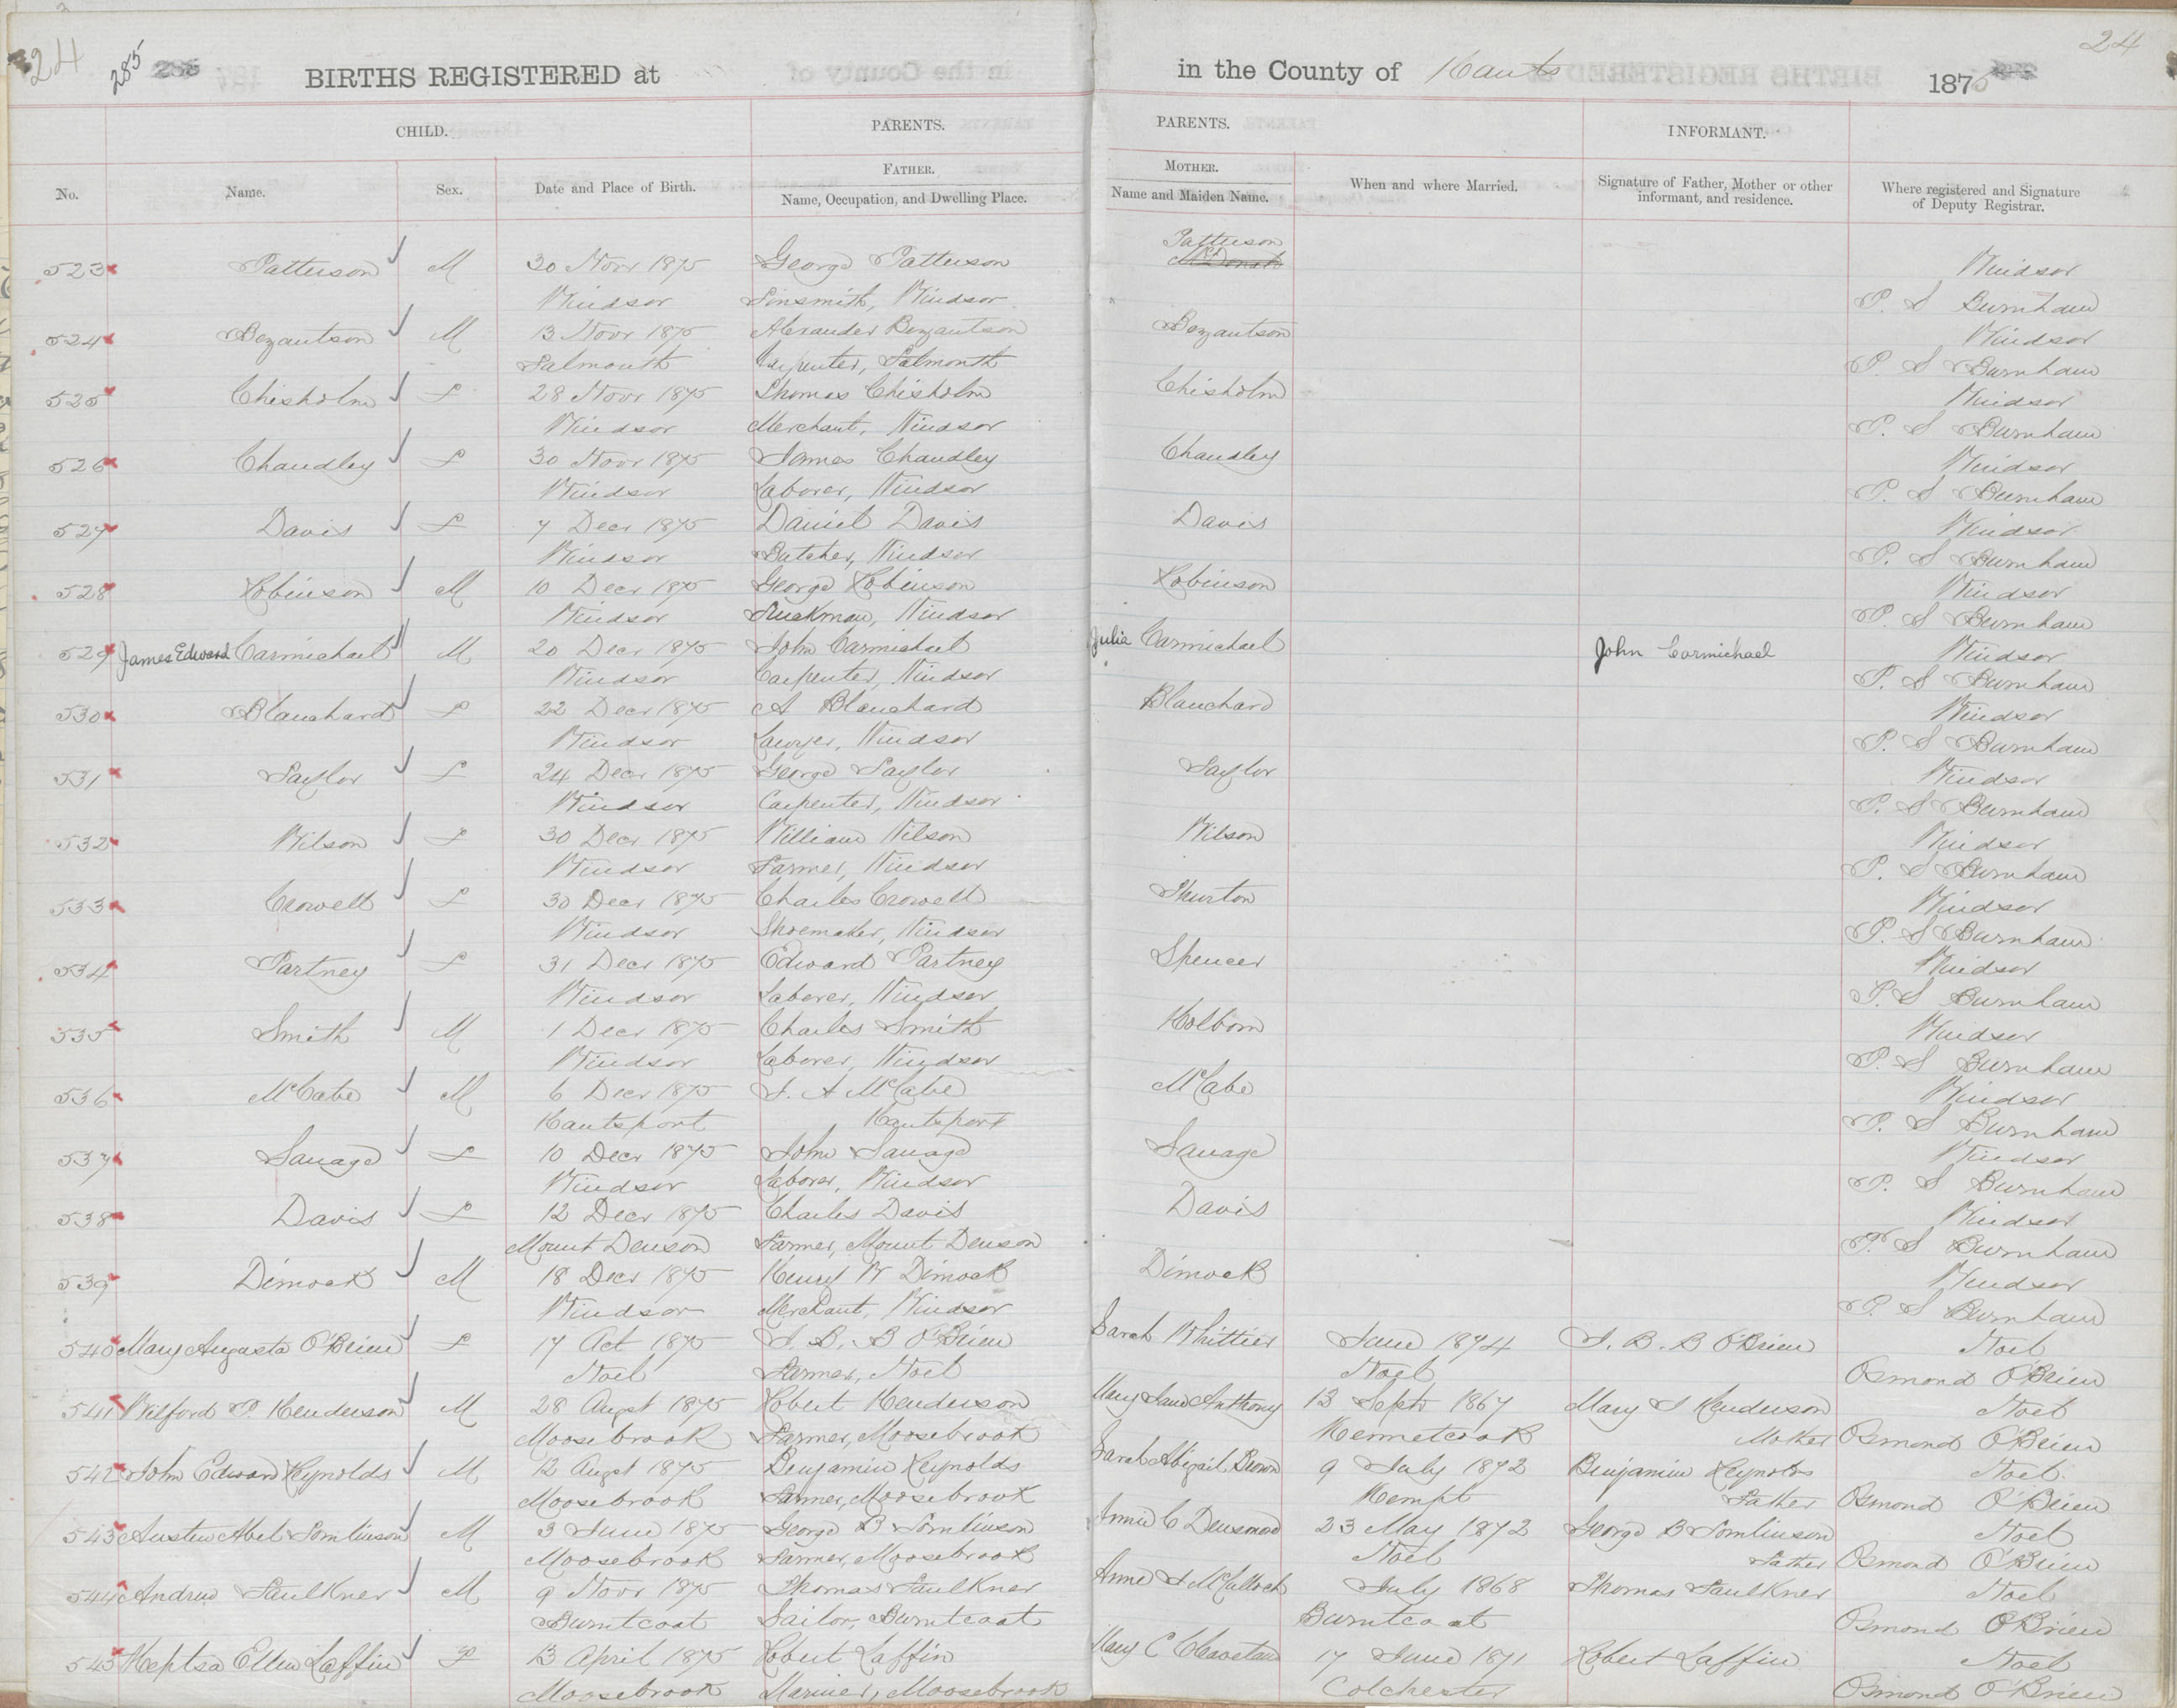 24 285 BIRTHS REGISTERED at in the County of Hants 1875 24
CHILD. PARENTS. PARENTS. INFORMANT.
FATHER. MOTHER.
No. Name. Sex. Date and Place of Birth. Name, Occupation, and Dwelling Place. Name and Maiden Name. When and where Married. Signature of Father, Mother or other informant, and residence. Where registered and Signature of Deputy Registrar.
Patterson
523 Patterson M 30 Novr 1875 George Patterson McDonald Windsor
Windsor Tinsmith, Windsor P. S Burnham
524 Bezantson M 13 Novr 1875 Alexander Bezantson Bezantson Windsor
Falmouth Carpenter, Falmouth P. S Burnham
525 Chisholm F 28 Novr 1875 Thomas Chisholm Chisholm Windsor
Windsor Merchant, Windsor P. S Burnham
526 Chandley F 30 Novr 1875 James Chandley Chandley Windsor
Windsor Laborer, Windsor P. S Burnham
527 Davis F 7 Decr 1875 Daniel Davis Davis Windsor
Windsor Butcher, Windsor P. S Burnham
528 Robinson M 10 Decr 1875 George Robinson Robinson Windsor
Windsor Truckman, Windsor P. S Burnham
529 James Edward Carmichael M 20 Decr 1875 John Carmichael Julia Carmichael John Carmichael Windsor
Windsor Carpenter, Windsor P. S Burnham
530 Blanchard F 22 Decr 1875 A Blanchard Blanchard Windsor
Windsor Lawyer, Windsor P. S Burnham
531 Taylor F 24 Decr 1875 George Taylor Taylor Windsor
Windsor Carpenter, Windsor P. S Burnham
532 Wilson F 30 Decr 1875 William Wilson Wilson Windsor
Windsor Farmer, Windsor P. S Burnham
533 Crowell F 30 Decr 1875 Charles Crowell Thurston Windsor
Windsor Shoemaker, Windsor P. S Burnham
534 Partney F 31 Decr 1875 Edward Partney Spencer Windsor
Windsor Laborer, Windsor P. S Burnham
535 Smith M 1 Decr 1875 Charles Smith Holborn Windsor
Windsor Laborer, Windsor P. S Burnham
536 McCabe M 6 Decr 1875 J. A McCabe McCabe Windsor
Hantsport Hantsport P. S Burnham
537 Savage F 10 Decr 1875 John Savage Savage Windsor
Windsor Laborer, Windsor P. S Burnham
538 Davis F 12 Decr 1875 Charles Davis Davis Windsor
Mount Denson Farmer, Mount Denson P. S Burnham
539 Dimock M 18 Decr 1875 Henry W Dimock Dimock Windsor
Windsor Merchant, Windsor P. S Burnham
540 Mary Augusta O'Brien F 17 Oct 1875 J. B. B O'Brien Sarah Whittier June 1874 J. B. B O'Brien Noel
Noel Farmer, Noel Noel Osmond O'Brien
541 Wilford P. Henderson M 28 Augst 1875 Robert Henderson Mary Jane Anthony 13 Septr 1867 Mary J Henderson Noel
Moosebrook Farmer, Moosebrook Kennetcook Mother Osmond O'Brien
542 John Edward Reynolds M 12 Augst 1875 Benjamin Reynolds Sarah Abigail Brown 9 July 1872 Benjamin Reynolds Noel
Moosebrook Farmer, Moosebrook Kempt Father Osmond O'Brien
543 Austen Abel Tomlinson M 3 June 1875 George B Tomlinson Annie C Densmore 23 May 1872 George B Tomlinson Noel
Moosebrook Farmer, Moosebrook Noel Father Osmond O'Brien
544 Andrew Faulkner M 9 Novr 1875 Thomas Faulkner Anne McCulloch July 1868 Thomas Faulkner Noel
Burntcoat Sailor, Burntcoat Burntcoat Osmond O'Brien
545 Heptsa Ellen Laffin F 13 April 1875 Robert Laffin Mary C Cleaveland 17 June 1871 Robert Laffin Noel
Moosebrook Mariner, Moosebrook Colchester Osmond O'Brien